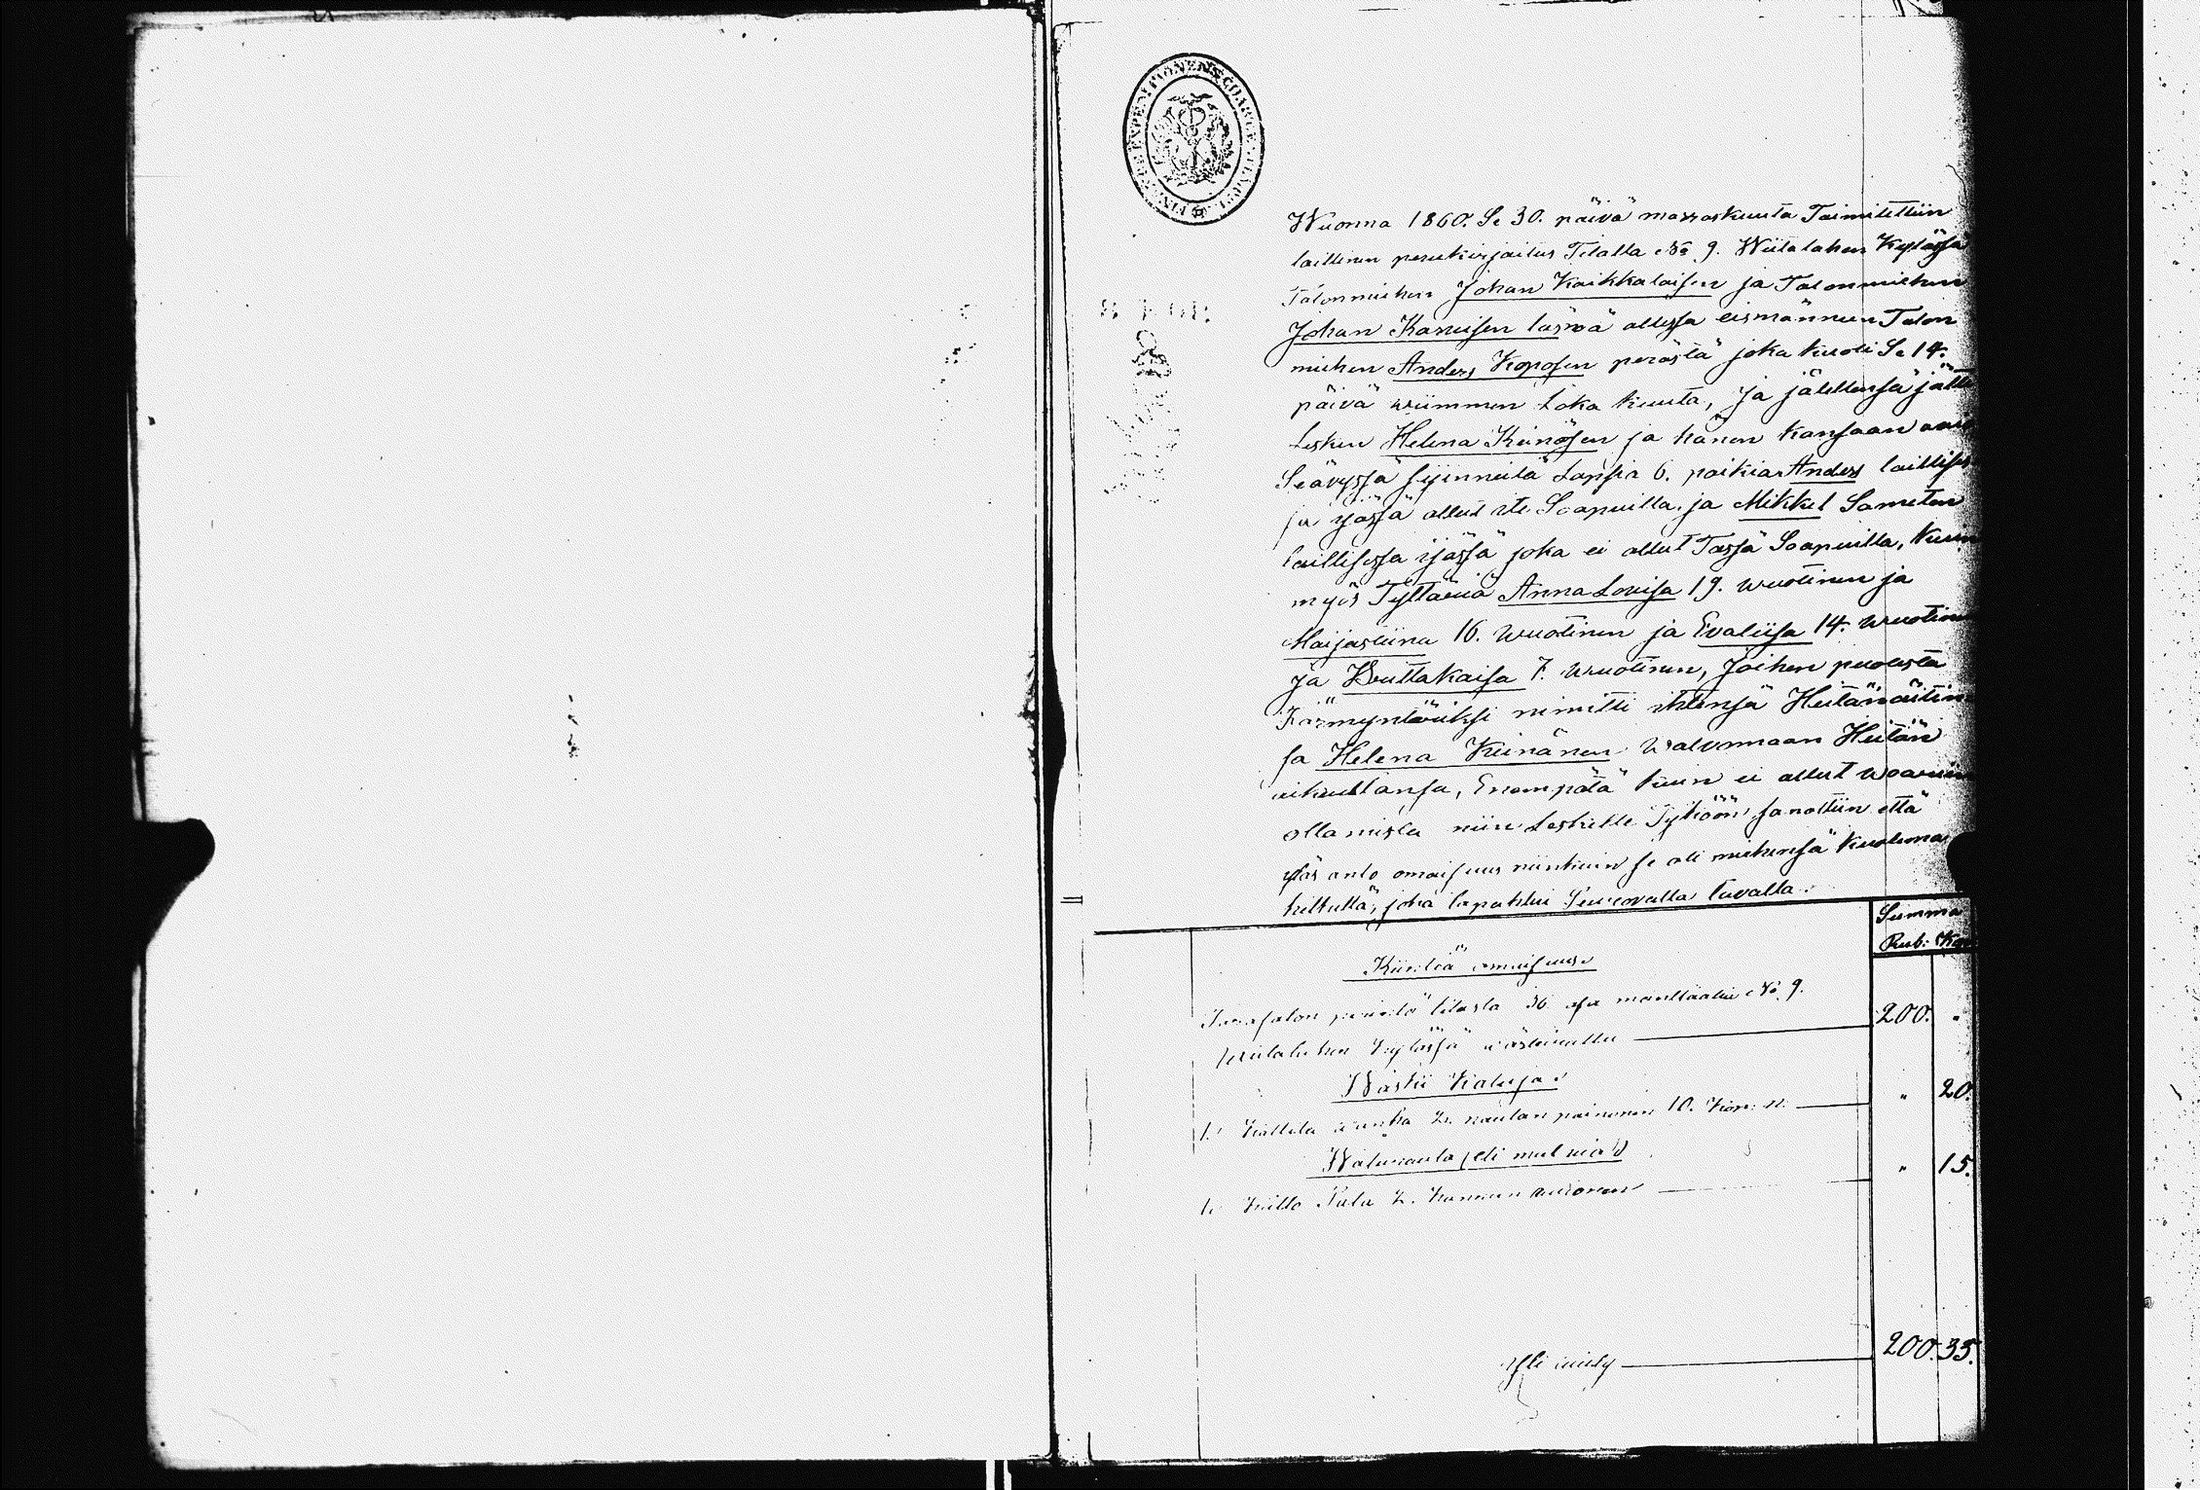 Wuonna 1860. Se 30. päivä marraskuuta Toimitettiin
laillinen perukirjoitus Tilalla No 9. Wiitalahen Kylässä
Talonmiehen Johan Kaikkalaisen ja Talonmiehen
Johan Karvisen läsnä ollessa eismännen Talon
miehen Anders Koposen perästä joka kuoli Se 14.
päivä wiimmen Loka kuuta, ja jälellensä jätti
Lesken Helena Keinäsen ja hänen kanssaan
Seävyssä syinneitä Lapsia 6. poikia Anders
ja ijässä ollut ite Soapuilla. ja Mikkel Sameten
laillisessa ijässä joka ei ollut Tässä Soapuilla, kuin
myös Tyttäriä Anna Lovisa 19. wuotinen ja
Maijastiina 16. wuotinen ja Evaliisa 14. wuotinen
ja Brittakaisa 7. wuotinen, joihen puolesta
Färmyntäriksi nimitti ihtensä Heitän äitin
sa Helena Keinänen Walvomaan Heitän
oikeuttansa, Enempätä kuin ei ollut
ollamista niin Leskelle Tyköön sanottiin että
ylös anto omaisuus niinkuin se oli miehensä kuoleman
hettellä, joka tapahtui Seuraavalla tavalla.
Summa
Rub: Kop
Kiintiä omaisuus
perintö tilasta 36 manttaalia No 9.
Kylässä 200. "
Waski Kaluja.
1. Kattila wanha 2. naulan painonen 10. Kop: n. " 20.
1. 2. Kannun " 15.
200. 35.